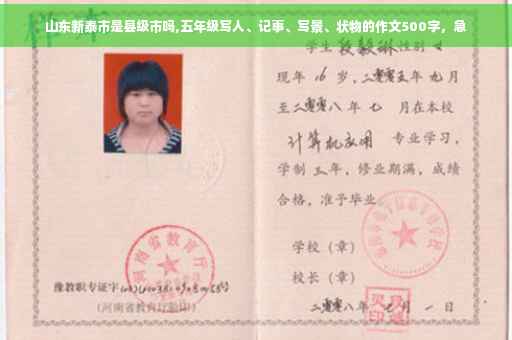 山东新泰市是县级市吗,五年级写人、记事、写景、状物的作文500字，急
学生 性别 女
现年 16 岁，二零零五年 九月
至二零零八年 七 月在本校
计算机应用 专业学习，
学制 三年，修业期满，成绩
合格，准予毕业
学校（章）
校长（章）
二零零八年 月 一 日
河南省教育厅
豫教职专证字
（河南省教育厅验印）